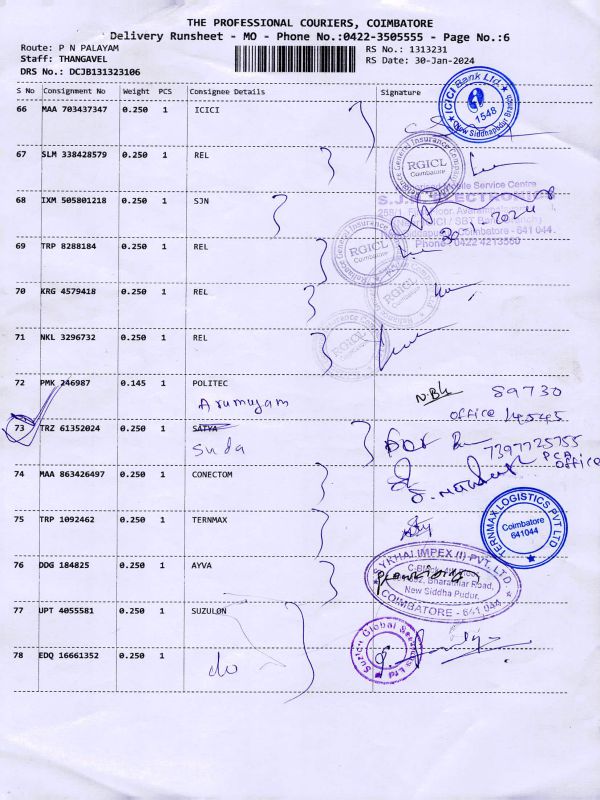 THE PROFESSIONAL COURIERS, COIMBATORE
Delivery Runsheet - MO - Phone No.:0422-3505555 - Page No.:6
Route: P N PALAYAM RS No.: 1313231
Staff: THANGAVEL RS Date: 30-Jan-2024
DRS No.: DCJB131323106
S No Consignment No Weight PCS Consignee Details Signature
66 MAA 703437347 0.250 1 ICICI
ICICI Bank Ltd. 1548 New Siddhapudur Branch
67 SLM 338428579 0.250 1 REL
Reliance General Insurance Company RGICL Coimbatore
68 IXM 505801218 0.250 1 SJN
Mobile Service Centre
Coimbatore - 641 044.
Phone: 0422 4213560
69 TRP 8288184 0.250 1 REL
RGICL
70 KRG 4579418 0.250 1 REL
RGICL
71 NKL 3296732 0.250 1 REL
RGICL
72 PMK 246987 0.145 1 POLITEC
Arumugam 89730
office 14545
73 TRZ 61352024 0.250 1 SATYA
Suda 7397725755
PCA office
74 MAA 863426497 0.250 1 CONECTOM
75 TRP 1092462 0.250 1 TERNMAX
TERNMAX LOGISTICS PVT LTD Coimbatore 641044
76 DDG 184825 0.250 1 AYVA
SYKHAI IMPEX (I) PVT. LTD
Bharathiar Road,
New Siddha Pudur,
COIMBATORE - 641 044
77 UPT 4055581 0.250 1 SUZULON
78 EDQ 16661352 0.250 1 do
Suzlon Global Services Ltd